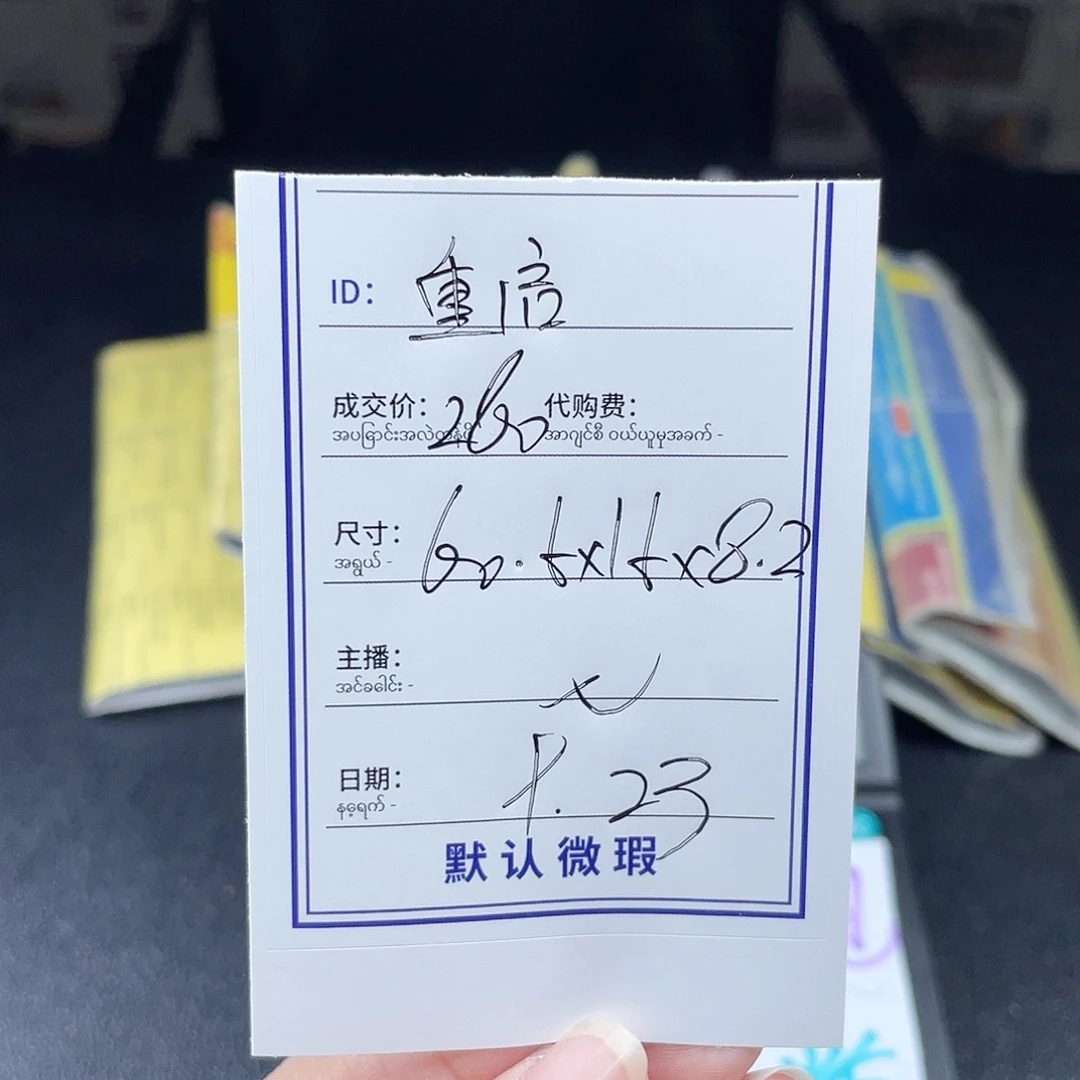 ID：重倍
成交价：260 代购费：
အာဂျင်စီ ဝယ်ယူမှုအခက် -
尺寸：60.5x15x8.2
အရွယ် -
主播：
အင်ခေါင်း -
日期：9.23
နေ့ရက် -
默认微瑕